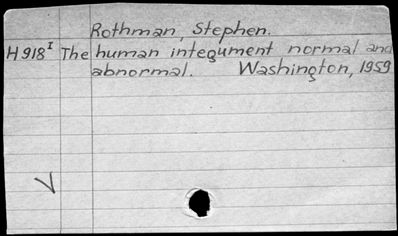 Rothman, Stephen.
H 918ᴵ The human integument normal and
abnormal. Washington, 1959